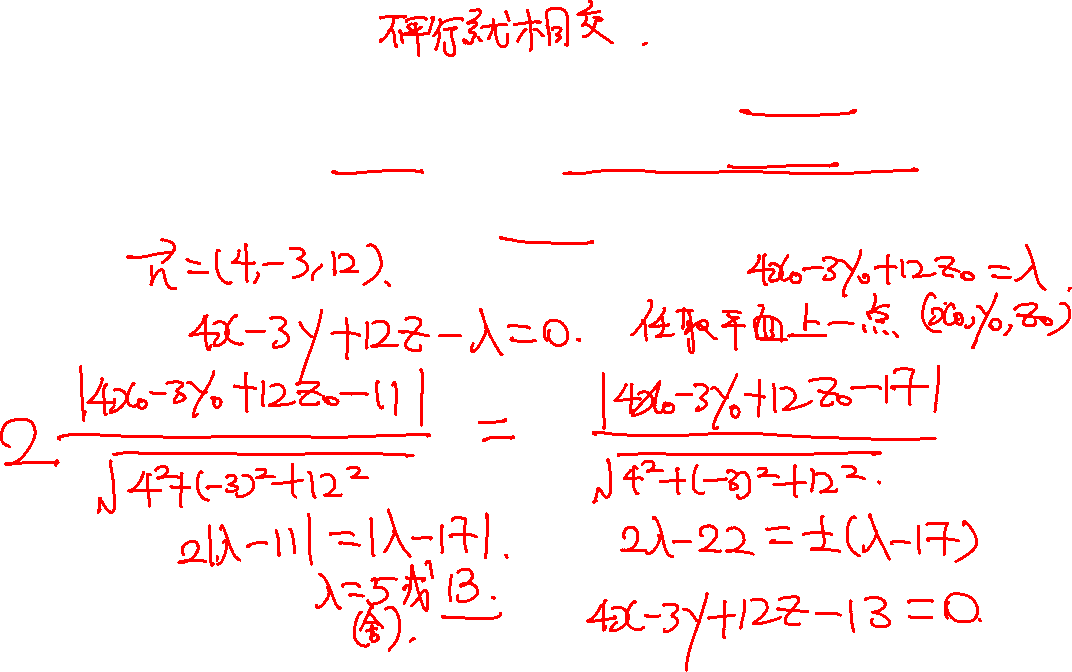 不平行就相交.
n⃗=(4,-3,12).
4x₀-3y₀+12z₀=λ.
4x-3y+12z-λ=0. 任取平面上一点 (x₀,y₀,z₀)
2 |4x₀-3y₀+12z₀-11| / √(4²+(-3)²+12²) = |4x₀-3y₀+12z₀-17| / √(4²+(-3)²+12²).
2|λ-11|=|λ-17|. 2λ-22=±(λ-17)
λ=5或13.
(舍). 4x-3y+12z-13=0.